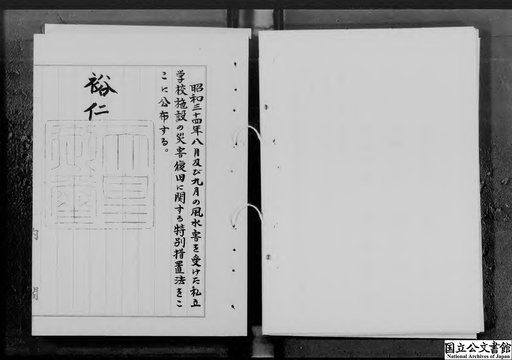 昭和三十四年八月及び九月の風水害を受けた私立
学校施設の災害復旧に関する特別措置法をこ
こに公布する。
裕仁
天皇
御璽
内閣
国立公文書館
National Archives of Japan